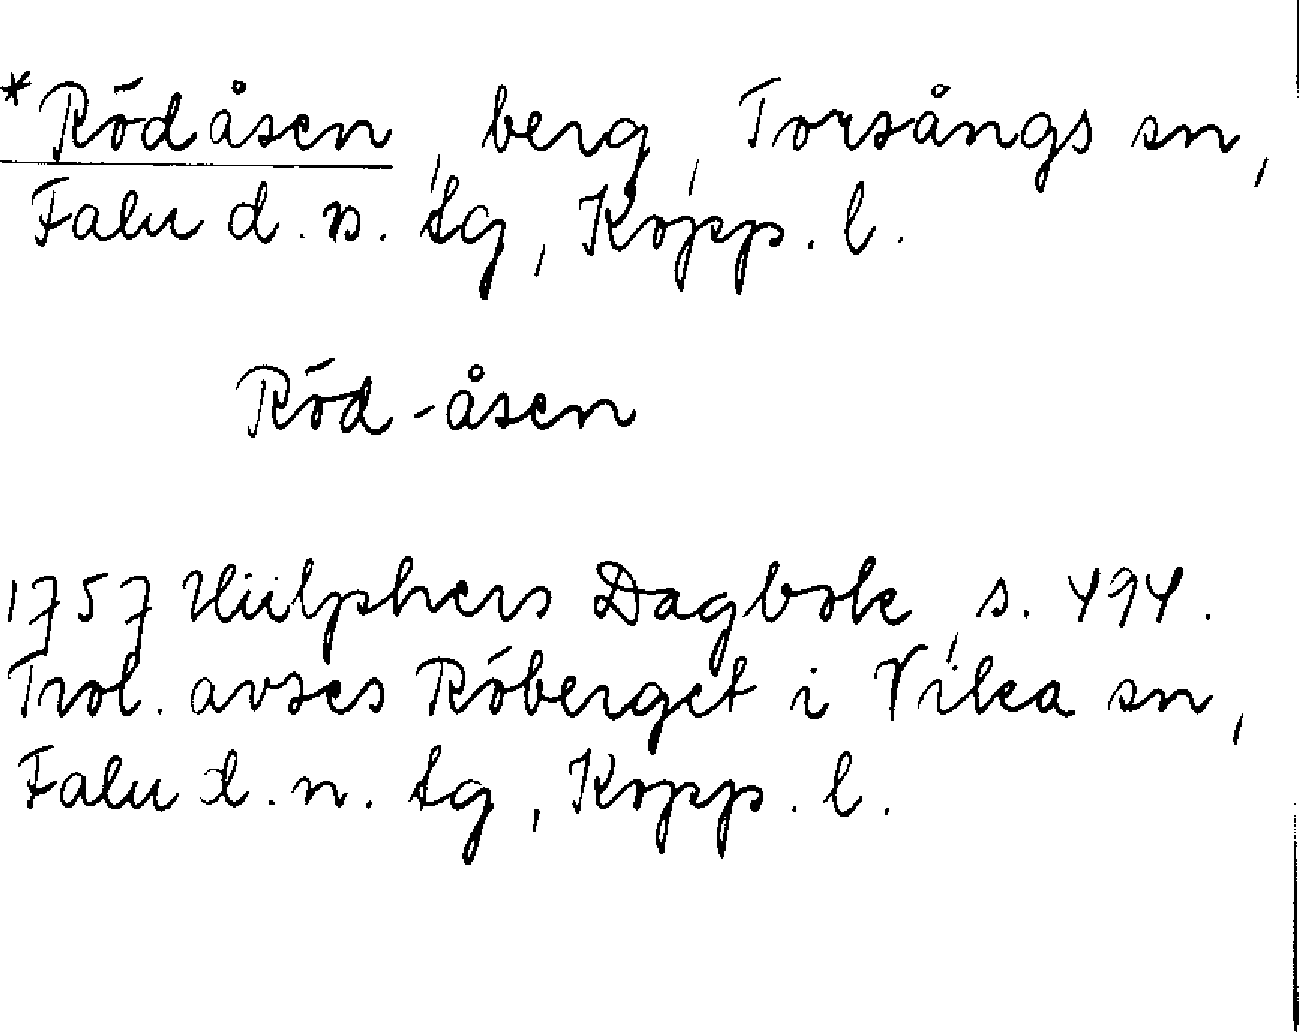 *Rödåsen, berg, Torsångs sn,
Falu d. s. tg, Kopp. l.
Röd-åsen
1757 Hülphers Dagbok, s. 494.
Trol. avses Röberget i Vika sn,
Falu d. n. tg, Kopp. l.